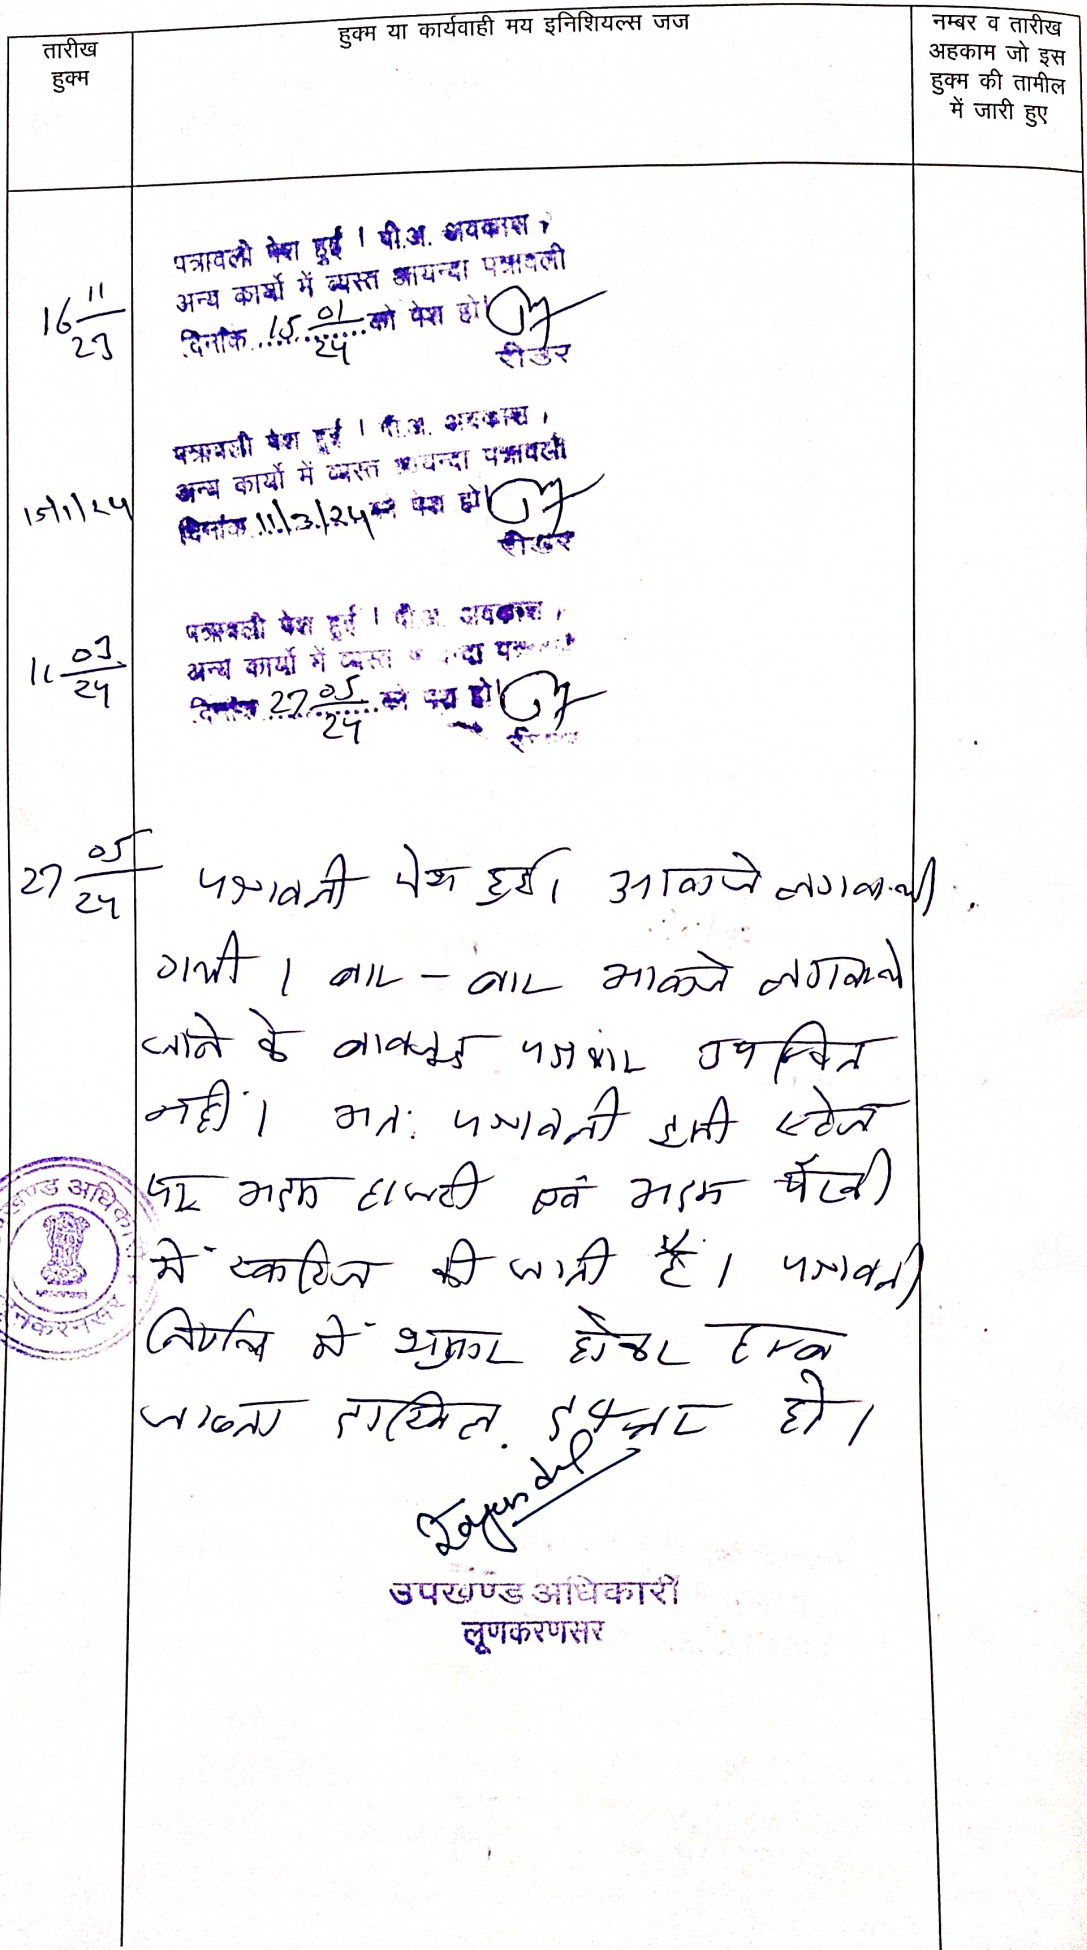 तारीख
हुक्म
हुक्म या कार्यवाही मय इनिशियल्स जज
नम्बर व तारीख
अहकाम जो इस
हुक्म की तामील
में जारी हुए
16 11/23
पत्रावली पेश हुई । पी.अ. अवकाश,
अन्य कार्यो में व्यस्त आयन्दा पत्रावली
दिनांक 15 01/24 को पेश हो।
रीडर
15/1/24
पत्रावली पेश हुई । पी.अ. अवकाश,
अन्य कार्यो में व्यस्त आयन्दा पत्रावली
दिनांक 11/3/24 को पेश हो।
रीडर
11 03/24
पत्रावली पेश हुई । पी.अ. अवकाश,
अन्य कार्यो में व्यस्त आयन्दा पत्रावली
दिनांक 27 05/24 को पेश हो।
रीडर
27 05/24
पत्रावली पेश हुई। आवाजे लगवायी
गयी । बार - बार आवाजे लगवाये
जाने के बावजूद पक्षकार उपस्थित
नहीं । अतः पत्रावली इसी स्टेज
पर अदम हाजरी एवं अदम पैरवी
में खारिज की जाती है । पत्रावली
निर्णित में शुमार होकर
जाब्ता दाखिल दफ्तर हो ।
उपखण्ड अधिकारी
लूणकरणसर